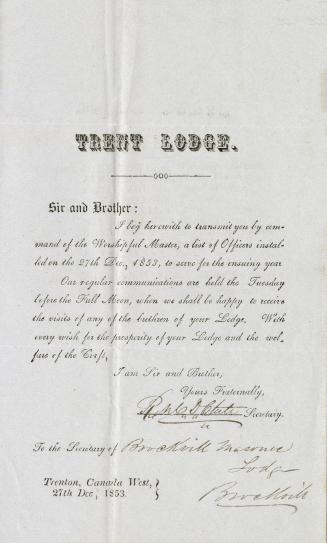 TRENT LODGE.
Sir and Brother:
I beg herewith to transmit you by com-
mand of the Worshipful Master, a list of Officers instal-
led on the 27th Dec., 1853, to serve for the ensuing year
Our regular communications are held the Tuesday
before the Full Moon, when we shall be happy to receive
the visits of any of the brethren of your Lodge. With
every wish for the prosperity of your Lodge and the wel-
fare of the Craft,
I am Sir and Brother,
Yours Fraternally,
Secretary.
To the Secretary of Brockvill Masonic
Lodge
Trenton, Canada West,
27th Dec, 1853.
Brockvill